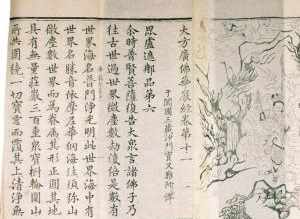 大方廣佛華嚴經卷第十一
于闐國三藏沙門實叉難陀譯
毘盧遮那品第六
尒時普賢菩薩復告大眾言諸佛子乃
往古世過世界微塵數劫復倍是數有
世界海名普門淨光明此世界海中有
世界名勝音依摩尼華網海住須彌山
微塵數世界而為眷屬其形正圓其地
具有無量莊嚴三百重眾寶樹輪圍山
所共圍繞一切寶雲而覆其上清淨無